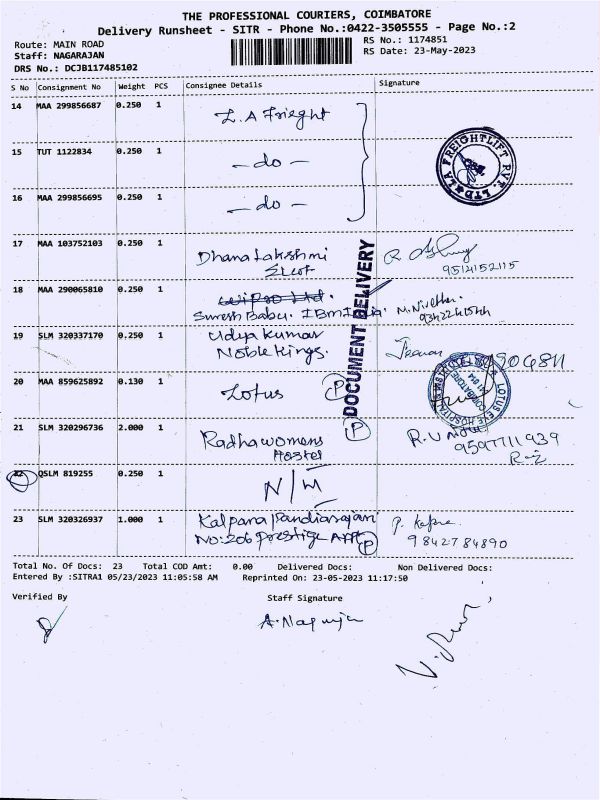 THE PROFESSIONAL COURIERS, COIMBATORE
Delivery Runsheet - SITR - Phone No.:0422-3505555 - Page No.:2
Route: MAIN ROAD RS No.: 1174851
Staff: NAGARAJAN RS Date: 23-May-2023
DRS No.: DCJB117485102
S No Consignment No Weight PCS Consignee Details Signature
14 MAA 299856687 0.250 1 L.A Frieght
15 TUT 1122834 0.250 1 - do -
FREIGHTLIFT PVT. LTD
16 MAA 299856695 0.250 1 - do -
17 MAA 103752103 0.250 1 Dhanalakshmi
9514152115
DOCUMENT DELIVERY
18 MAA 290065810 0.250 1 Wipro Ltd.
Suresh Babu. IBM India
19 SLM 320337170 0.250 1 Udya Kumar
Noble Kings.
20 MAA 859625892 0.130 1 Lotus P
LOTUS EYE HOSPITAL
COIMBATORE
21 SLM 320296736 2.000 1 Radha womens P
Hostel
9597711939
22 QSLM 819255 0.250 1 N/M
23 SLM 320326937 1.000 1 Kalpana Pandiarajan
No:206 Prestige APP P
9842784890
Total No. Of Docs: 23 Total COD Amt: 0.00 Delivered Docs: Non Delivered Docs:
Entered By :SITRA1 05/23/2023 11:05:58 AM Reprinted On: 23-05-2023 11:17:50
Verified By Staff Signature
A. Nagaraja